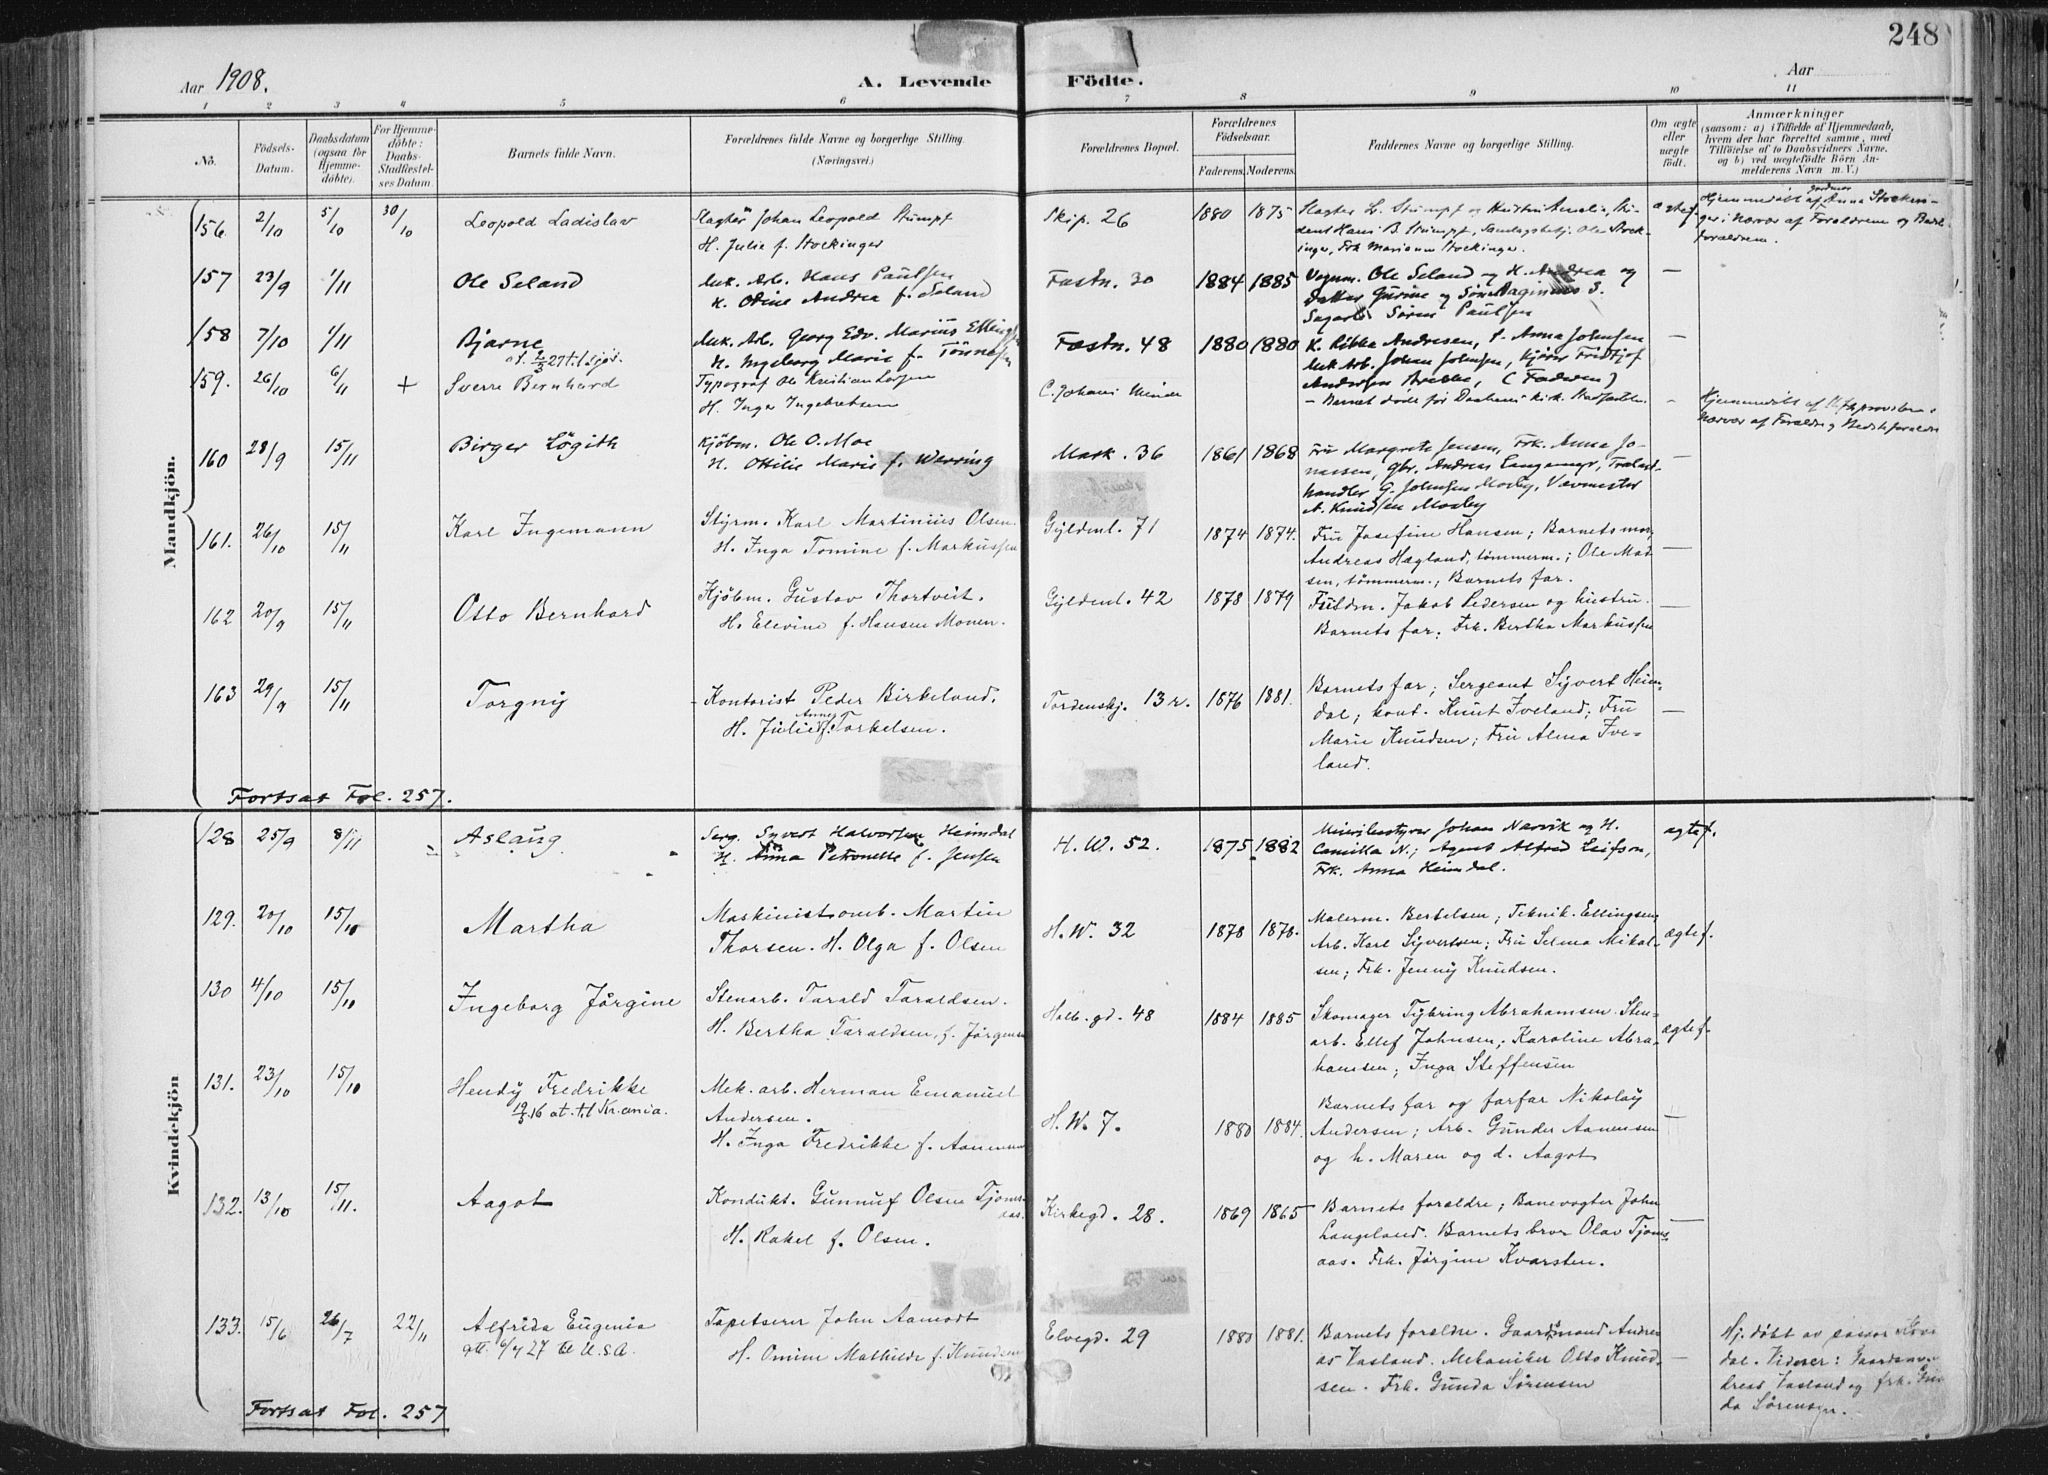 248
Aar 1908.
A. Levende Födte.
Aar
1 2 3 4 5 6 7 8 9 10 11
No.
Födsels-Datum.
Daabsdatum (ogsaa for Hjemme-döbte).
For Hjemme-döbte: Daabs-Stadfæstel-ses Datum.
Barnets fulde Navn.
Forældrenes fulde Navne og borgerlige Stilling. (Næringsvei.)
Forældrenes Bopæl.
Forældrenes Födselsaar.
Faderens. Moderens.
Faddernes Navne og borgerlige Stilling.
Om ægte eller uægte födt.
Anmærkninger
(saasom: a) i Tilfælde af Hjemmedaab, hvem der har forrettet samme, med Tilföielse af to Daabsvidners Navne, og b) ved uægtefödte Börn An-melderens Navn m. V.)
Mandkjön.
156. 2/10 5/10 30/10 Leopold Ladislav
Slagter Johan Leopold Stümpf
H. Julie f. Stockinger
Skip. 26 1880 1875
Slagter L. Stümpf og Kristin Amalie,
Hans B. Stümpf, Ole Stock-
inger, Frk Marianne Stockinger.
ægtef.
Hjemmedöbt af Jordmor Anna Stockin-
ger i Nærvær af Forældrene og Bedste-
forældrene.
157 23/9 1/11 Ole Seland
Mek. Arb. Hans Paulsen
H. Odine Andrea f. Seland
Fæstn. 30 1884 1885
Vognm. Ole Seland og H. Andrea og
Datter Gurine og Sön
Søren Paulsen
—
158 7/10 1/11 Bjarne
2/3 27 til Sjös.
Mek. Arb. Georg Edv. Marius Ellingsen
H. Ingeborg Marie f. Tönnesen
Fæstn. 48 1880 1880
K. Rikka Andresen, Anna Johnsen
Mek Arb. Johan Johnsen, Fridtjof
Andersen (Faderen)
—
159. 26/10 6/11 + Sverre Bernhard
Typograf Ole Kristian Larsen
H. Inger Ingebretsen
C. Johans Minde
- Barnet döde för Daabens kirk. Stadfæstelse.
-
Hjemmedöbt af i
Nærvær af Forældre og Bedsteforældre
160 28/9 15/11 Birger Lögith
Kjöbm. Ole O. Moe
H. Ottilie Marie f. Werring
Mark. 36 1861 1868
Fru Margrete Jensen, Frk. Anna Jo-
nassen, Gbr. Andreas Langemyr, Trælast-
handler G. Johnsen Mosby, Vævmester
A. Knudsen Mosby
—
161. 26/10 15/11 Karl Ingemann
Styrm. Karl Martinius Olsen.
H. Inga Tomine f. Markussen
Gyldenl. 71 1874 1874.
Fru Josefine Hansen; Barnets mor
Andreas Hægland, tömmerm.; Ole Mad-
sen, tömmerm.; Barnets far.
—
162 20/9 15/11 Otto Bernhard
Kjöbm. Gustav Thortveit.
H. Elevine f. Hansen Monen.
Gyldenl. 42 1878 1879
Fuldm. Jakob Pedersen og hustru.
Barnets far. Frk. Bertha Markussen
—
163 29/9 15/11 Torgny
- Kontorist Peder Birkeland.
H. Julie Anne f. Torkelsen.
Tordenskj. 13 r. 1876 1881.
Barnets far; Sergeant Syvert Heim-
dal; kont. Knut Iveland; Fru
Marie Knudsen; Fru Alma Ive-
land.
—
Fortsat Fol. 257.
Kvindekjön
128 25/9 8/11 Aslaug
Serg. Syvert Halvorsen Heimdal
H. Anna Petronelle f. Jensen
H. W. 52. 1875 1882
Johan Narvik og H.
Camilla N.; Agent Alfred Leifson,
Frk. Anna Heimdal.
ægtef.
129. 20/10 15/10 Martha
Maskinist omb. Martin
Thorsen. H. Olga f. Olsen
H. W. 32 1878 1878.
Malerm. Bertelsen; Teknik. Ellingsen
Arb. Karl Syvertsen; Fru Selma Mikal-
sen; Frk. Jenny Knudsen.
ægtef.
130 4/10 15/10 Ingeborg Jørgine
Stenarb. Tarald Taraldsen.
H. Bertha Taraldsen, f. Jørgensen
Holb. gd. 48 1884 1885
Skomager Tybring Abrahamsen. Sten-
arb. Ellef Johnsen; Karoline Abra-
hamsen; Inga Steffensen
ægtef.
131. 23/10 15/10 Hendy Fredrikke
19/5 16 at. til Kr.ania.
Mek. arb. Herman Emanuel
Andersen.
H. Inga Fredrikke f. Aanensen
H. W. 7. 1880 1884.
Barnets far og farfar Nikolay
Andersen; Arb. Gunder Aanensen
og h. Maren og d. Aagot
—
132. 13/10 15/11. Aagot
Kondukt. Gunnuf Olsen Tjoms-
aas.
H. Rakel f. Olsen.
Kirkegd. 28. 1869 1865
Barnets forældre; Banevogter John
Langeland. Barnets bror Olav Tjoms-
aas. Frk. Jørgine Kvarsten.
—
133. 15/6 26/7 22/11 Alfrida Eugenia
att. 6/4 27 til U.S.A.
Tapetserer John Aamodt
H. Omine Mathilde f. Knudsen
Elvegd. 29 1880 1881.
Barnets forældre. Gaardmand Andre-
as Vasland. Mekaniker Otto Knud-
sen. Frk. Gunda Sørensen
—
Hj. döbt av
dal. Vidner: Gaardm. An-
dreas Vasland og frk. Gun-
da Sørensen.
Fortsat Fol. 257